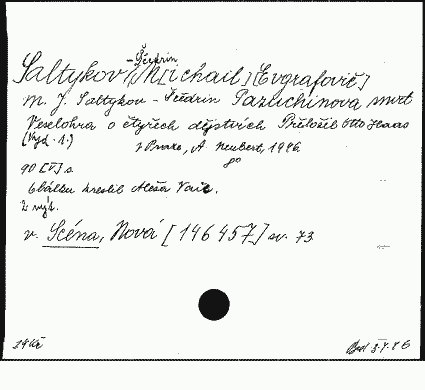 Saltykov-Ščedrin, M[ichail] [Evgrafovič]
M. J. Saltykov - Ščedrin Pazuchinova smrt
Veselohra o čtyřech dějstvích Přeložil Otto Haas
(Vyd. 1.)
V Praze, A. Neubert, 1946.
8°
90 [V] s.
Obálku kreslil Aleša Vaic.
2 výt.
v. Scéna, Nová [146457] sv. 73
24 Kč